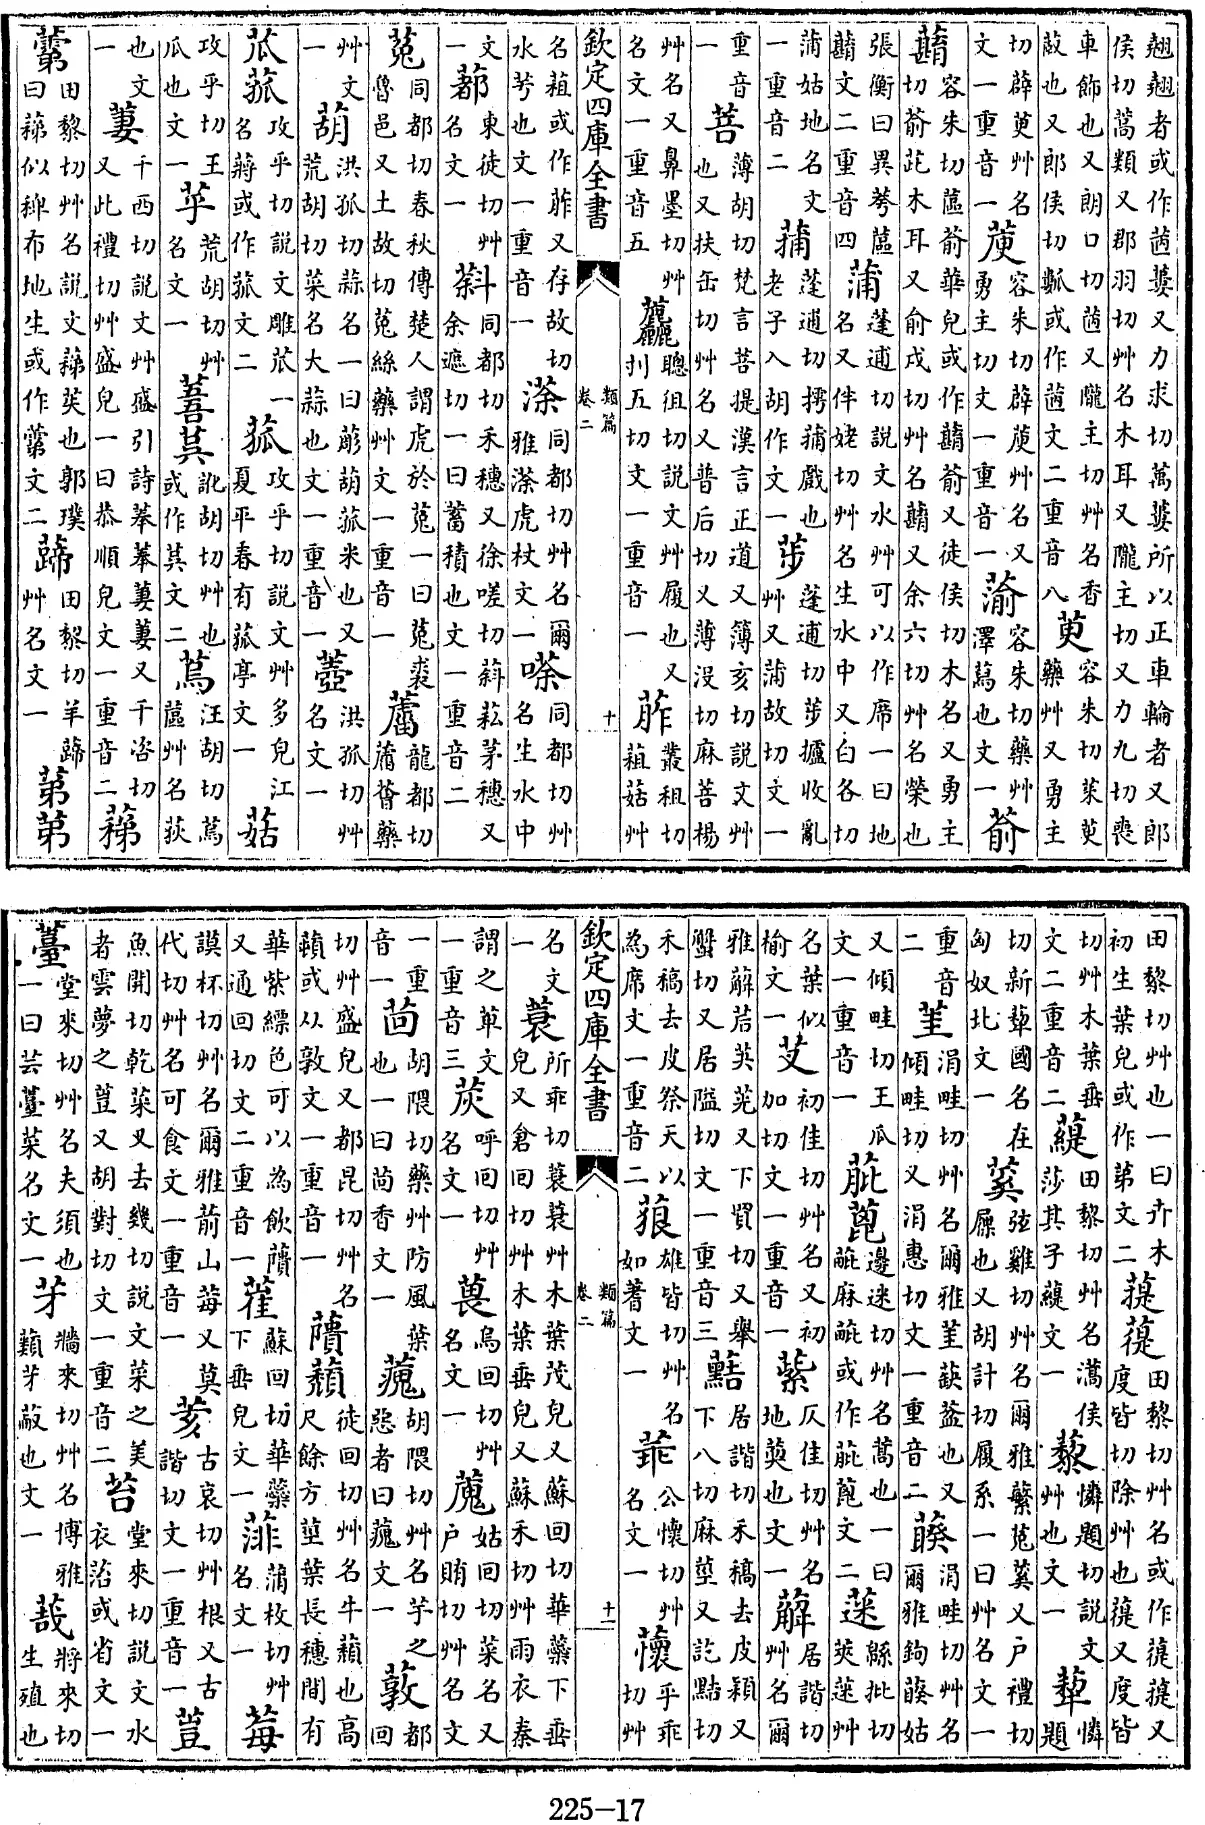 翹翹者或作䓟蔞又力求切蔞所以正車輪者又郎
侯切蒿類又郡羽切艸名木耳又隴主切又力九切喪
車飾也又朗口切䓟又隴主切艸名香
蔽也又郎侯切瓤或作䓟文二重音八
萸
容朱切茱萸
藥艸又勇主
切薜萸艸名
文一重音一
萸
容朱切薜萸艸名又
勇主切文一重音一
蕍
容朱切藥艸
澤蕮也文一
萮
蘛
容朱切蓲萮華皃或作蘛萮又徒侯切木名又勇主
切萮茈木耳又俞戍切艸名蘛又余六切艸名榮也
張衡曰異荂蓲
蘛文二重音四
蒲
蓬逋切說文水艸可以作席一曰地
名又伴姥切艸名生水中又白各切
蒲姑地名文
一重音二
蒱
蓬逋切摴蒱戲也
老子入胡作文一
荹
蓬逋切荹攎收亂
艸又蒲故切文一
重音
一
菩
薄胡切梵言菩提漢言正道又簿亥切說文艸
也又扶缶切艸名又普后切又薄沒切麻菩楊
艸名又鼻墨切艸
名文一重音五
麤
聰徂切說文艸履也又
刌五切文一重音一
葄
叢租切
蒩菇艸
欽定四庫全書
類篇
卷二
十
名蒩或作葄又存故切
水芩也文一重音一
蒤
同都切艸名爾
雅蒤虎杖文一
㗬
同都切艸
名生水中
文
一
䔑
東徒切艸
名文一
䔑
同都切禾穗又徐嗟切䔑菘茅穗又
余遮切一曰蓄積也文一重音二
菟
同都切春秋傳楚人謂虎於菟一曰菟裘
魯邑又土故切菟絲藥艸文一重音一
蘆
龍都切
蘆菔藥
艸文
一
葫
洪孤切蒜名一曰彫葫菰米也又
荒胡切菜名大蒜也文一重音一
壺
洪孤切艸
名文一
苽菰
攻乎切說文雕苽一
名蔣或作菰文二
菰
攻乎切說文艸多皃江
夏平春有菰亭文一
菇
攻乎切王
瓜也文一
苸
荒胡切艸
名文一
萻萁
訛胡切艸也
或作萁文二
蔦
汪胡切蔦
蓲艸名荻
也文
一
萋
千西切說文艸盛引詩菶菶萋萋又千咨切
又此禮切艸盛皃一曰恭順皃文一重音二
稊
虀
田黎切艸名說文蕛苵也郭璞
曰蕛似稗布地生或作虀文二
蹄
田黎切羊蹄
艸名文一
苐第
田黎切艸也一曰卉木
初生葉皃或作第文二
蕛蕛
田黎切艸名或作蕛蕛又
度皆切除艸也蕛又度皆
切艸木葉垂
文二重音二
緹
田黎切艸名蒿侯
莎其子緹文一
藜
憐題切說文
艸也文一
犂
憐
題
切新犂國名在
匈奴北文一
蒵
弦雞切艸名爾雅蘩菟蒵又戶禮切
屧也又胡計切履系一曰艸名文一
重音
二
茥
涓畦切艸名爾雅茥蒛葐也又
傾畦切又涓惠切文一重音二
䕫
涓畦切艸名
爾雅鉤䕫姑
又傾畦切王瓜
文一重音一
䕗蓖
邊迷切艸名蒿也一曰
䕗麻䕗或作蓖文二
蒾
緜批切
莢蒾艸
名葉似
榆文一
芆
初佳切艸名又初
加切文一重音一
紫
仄佳切艸名
地薁也文一
薢
居諧切
艸名爾
雅薢茩英茪又下買切又舉
蟹切又居隘切文一重音三
𪎭
居諧切禾稿去皮穎又
下八切麻莖又訖黠切
禾稿去皮祭天以
為席文一重音二
蒗
雄皆切艸名
如蓍文一
菲
公懷切艸
名文一
懷
乎乖
切艸
欽定四庫全書
類篇
卷二
十一
名文
一
蓑
所乖切蓑蓑艸木葉茂皃又蘇回切華蘂下垂
皃又倉回切艸木葉垂皃又蘇禾切艸雨衣秦
謂之萆文
一重音三
䒽
呼回切艸
名文一
葨
烏回切艸
名文一
蒐
姑回切菜名又
戶賄切艸名文
一重
音一
茴
胡隈切藥艸防風葉
也一曰茴香文一
蘹
胡隈切艸名芋之
惡者曰蘹文一
敦
都
回
切艸盛皃又都昆切艸名
蘱或从敦文一重音一
蘈蘱
徒回切艸名牛蘱也高
尺餘方莖葉長穗間有
華紫縹色可以為飲蘈
又通回切文二重音一
蓷
蘇回切華蘂
下垂皃文一
䔒
蒲枚切艸
名文一
莓
謨杯切艸名爾雅葥山莓又莫
代切艸名可食文一重音一
荄
古哀切艸根又古
諧切文一重音一
荳
魚開切乾菜又去幾切說文菜之美
者雲夢之荳又胡對切文一重音二
苔
堂來切說文水
衣菭或省文一
薹
堂來切艸名夫須也
一曰芸薹菜名文一
芧
牆來切艸名博雅
蘱芧蔽也文一
䓱
將來切
生殖也
225-17